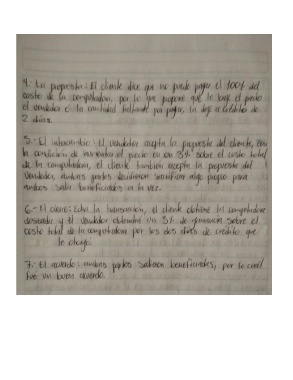 4.- La propuesta: El cliente dice que no puede pagar el 100% del
costo de la computadora, por lo que propone que le baje el precio
el vendedor o la cantidad faltante por pagar, la deje a crédito de
2 días.
5.- El intercambio: El vendedor acepta la propuesta del cliente, con
la condición de aumentar el precio en un 3% sobre el costo total
de la computadora, el cliente también acepta la propuesta del
vendedor, ambas partes decidieron sacrificar algo propio para
ambos salir beneficiados a la vez.
6.- El cierre: Con la transacción, el cliente obtiene la computadora
deseada y el vendedor obtendrá un 3% de ganancia sobre el
costo total de la computadora por los dos días de crédito que
le otorgó.
7.- El acuerdo: ambas partes salieron beneficiadas, por lo cual
fue un buen acuerdo.